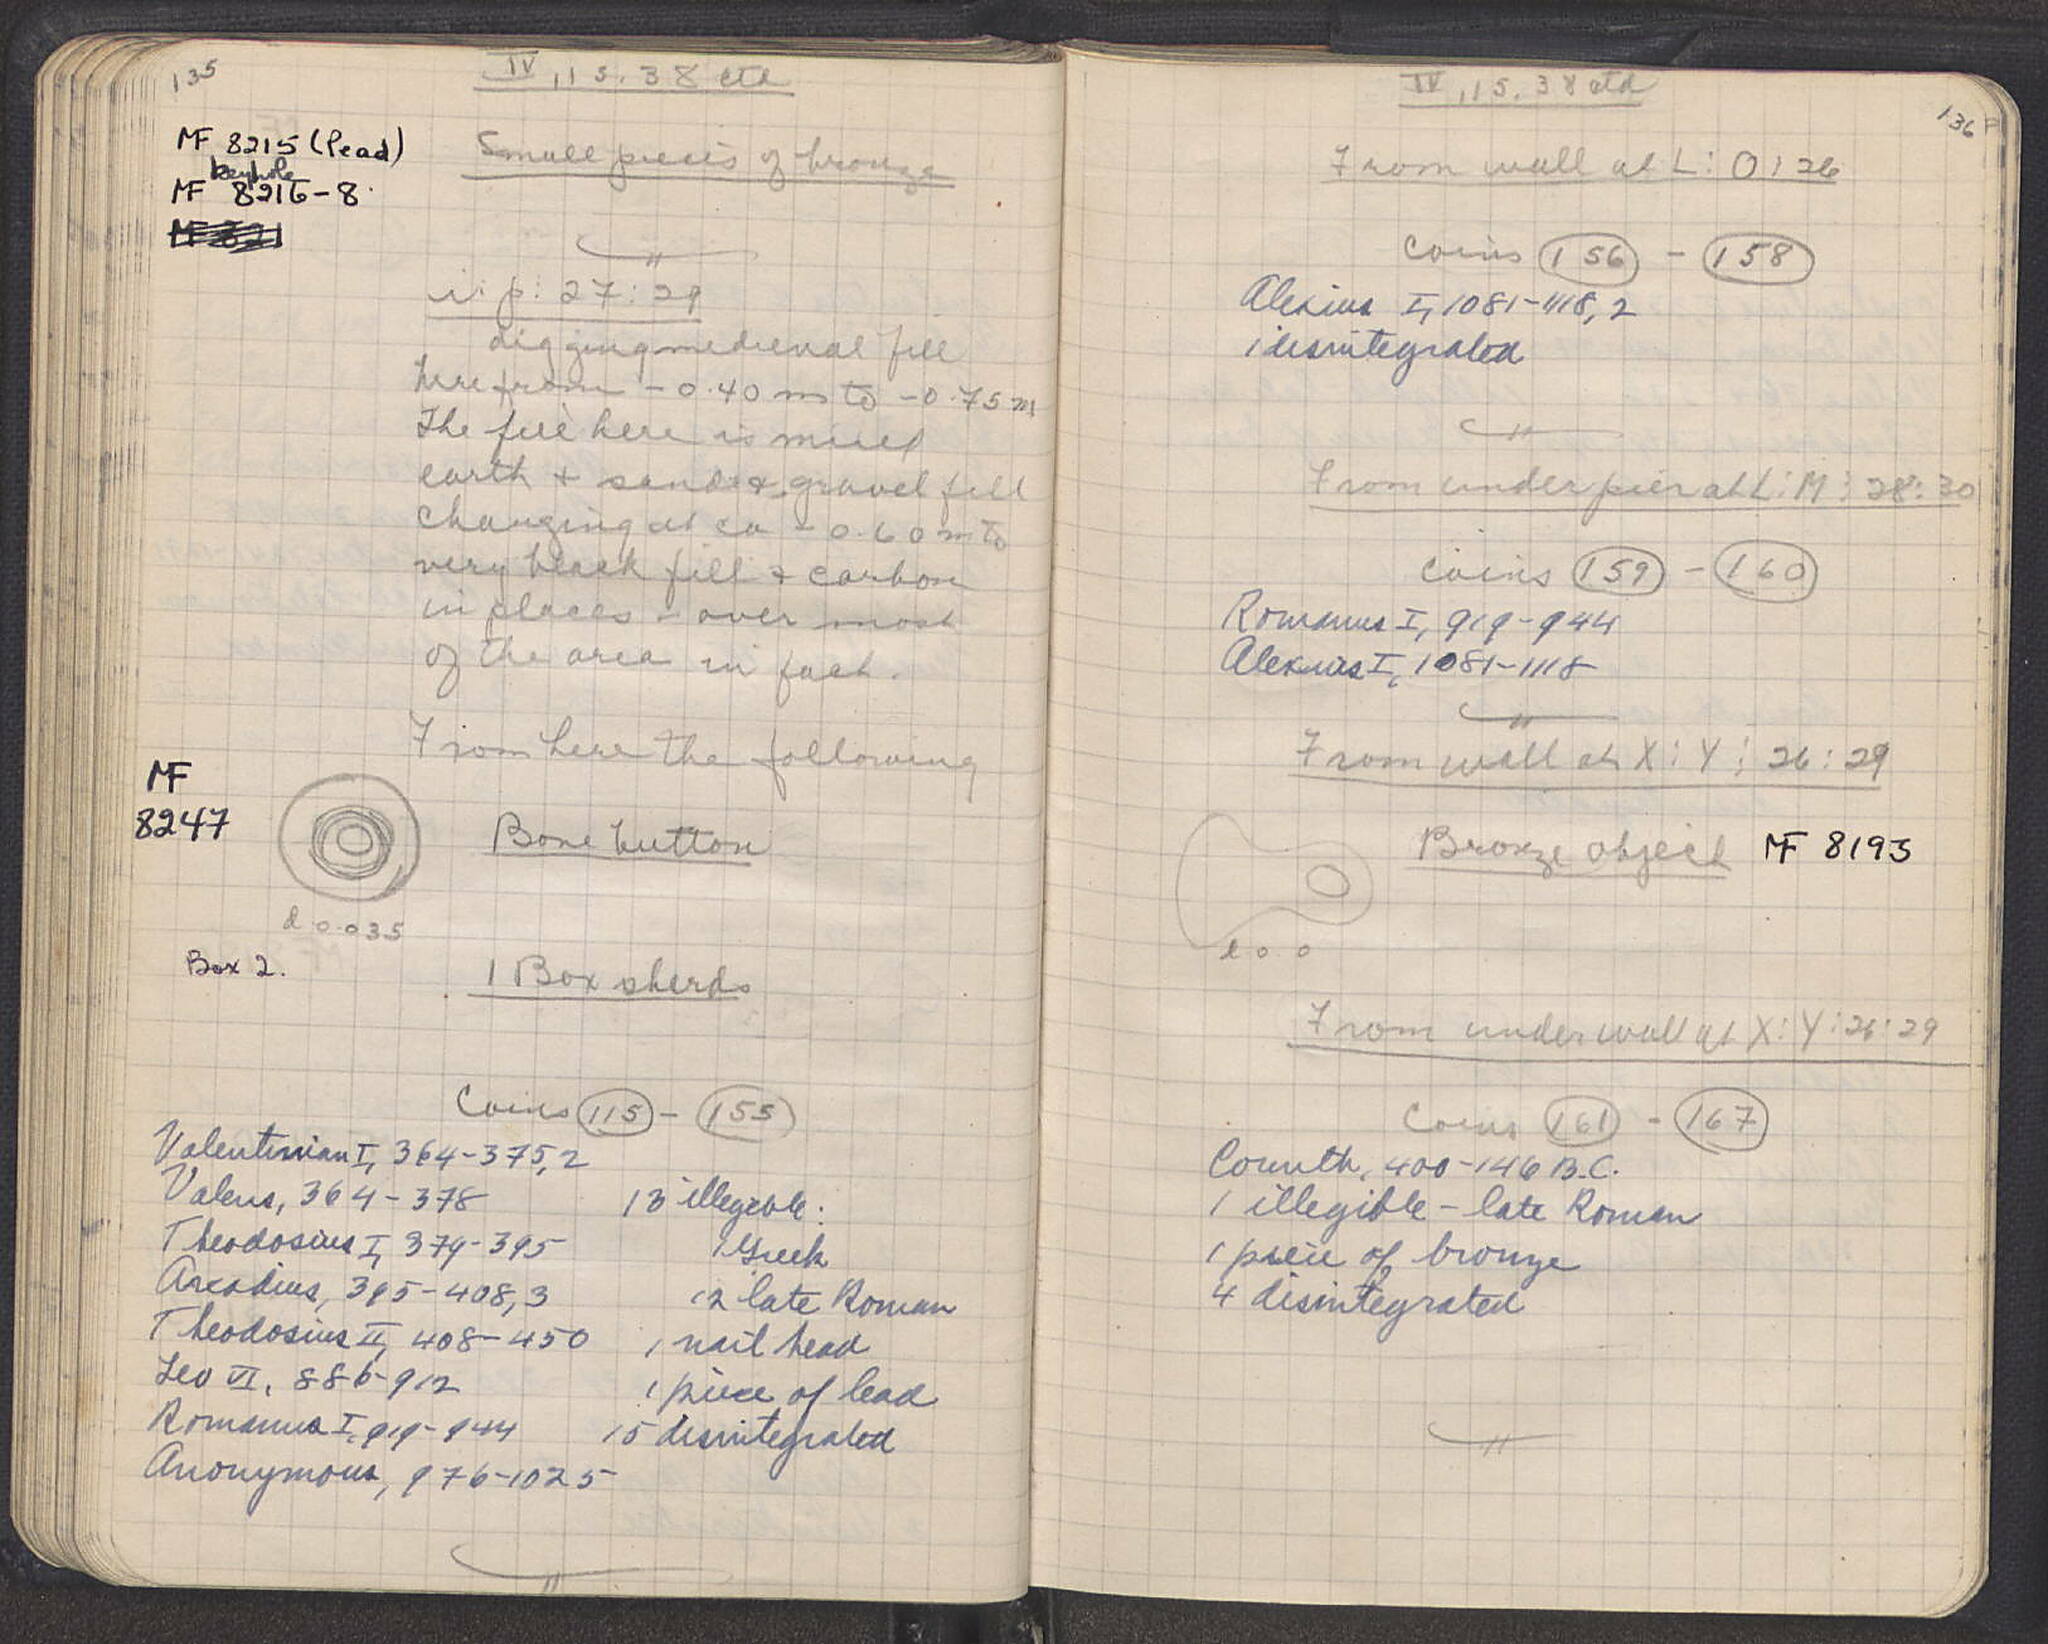 135
IV, 15. 38 ctd
MF 8215 (lead)
keyhole
MF 8216-8
Small pieces of bronze
27:29
digging medieval fill
here from - 0.40 m to - 0.75 m
The fill here is mixed
earth + sand & gravel fill
changing at ca - 0.60 m to
very black fill + carbon
in places - over most
of the area in fact.
From here the following
MF
8247
Bone button
d 0.035
Box 2.
1 Box sherds
Coins 115 - 155
Valentinian I, 364-375, 2
Valens, 364-378
Theodosius I, 379-395
Arcadius, 395-408, 3
Theodosius II, 408-450
Leo VI, 886-912
Romanus I, 919-944
Anonymous, 976-1025
13 illegible:
1 Greek
12 late Roman
1 nail head
1 piece of lead
15 disintegrated
136
IV, 15. 38 ctd
From wall at L: O: 26
Coins 156 - 158
Alexius I, 1081-1118, 2
1 disintegrated
From under pier at L: M: 28:30
Coins 159 - 160
Romanus I, 919-944
Alexius I, 1081-1118
From wall at X: Y: 26:29
Bronze object MF 8193
l 0.0
From under wall at X: Y: 26:29
Coins 161 - 167
Corinth, 400-146 B.C.
1 illegible - late Roman
1 piece of bronze
4 disintegrated